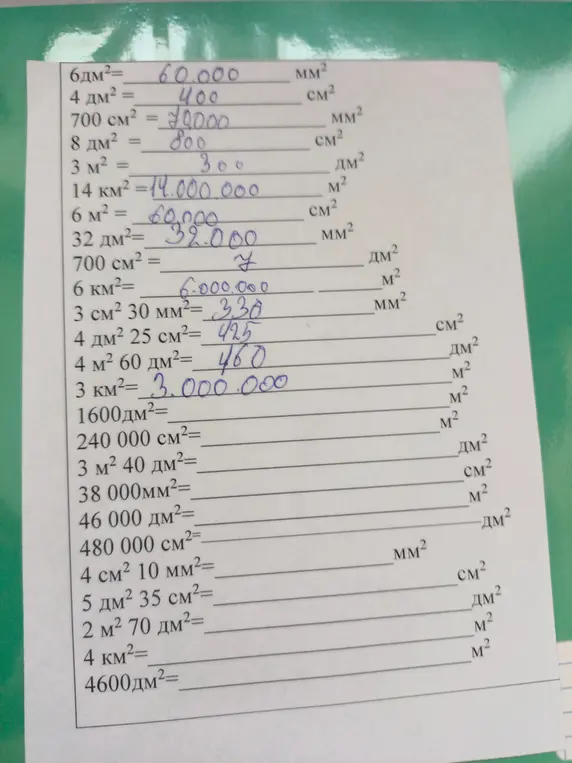 6дм²= 60.000 мм²
4 дм² = 400 см²
700 см² = 70000 мм²
8 дм² = 800 см²
3 м² = 300 дм²
14 км² = 14.000.000 м²
6 м² = 60.000 см²
32 дм²= 32.000 мм²
700 см² = 7 дм²
6 км²= 6.000.000 м²
3 см² 30 мм²= 330 мм²
4 дм² 25 см²= 425 см²
4 м² 60 дм²= 460 дм²
3 км²= 3.000.000 м²
1600дм²= м²
240 000 см²= м²
3 м² 40 дм²= дм²
38 000мм²= см²
46 000 дм²= м²
480 000 см²= дм²
4 см² 10 мм²= мм²
5 дм² 35 см²= см²
2 м² 70 дм²= дм²
4 км²= м²
4600дм²= м²